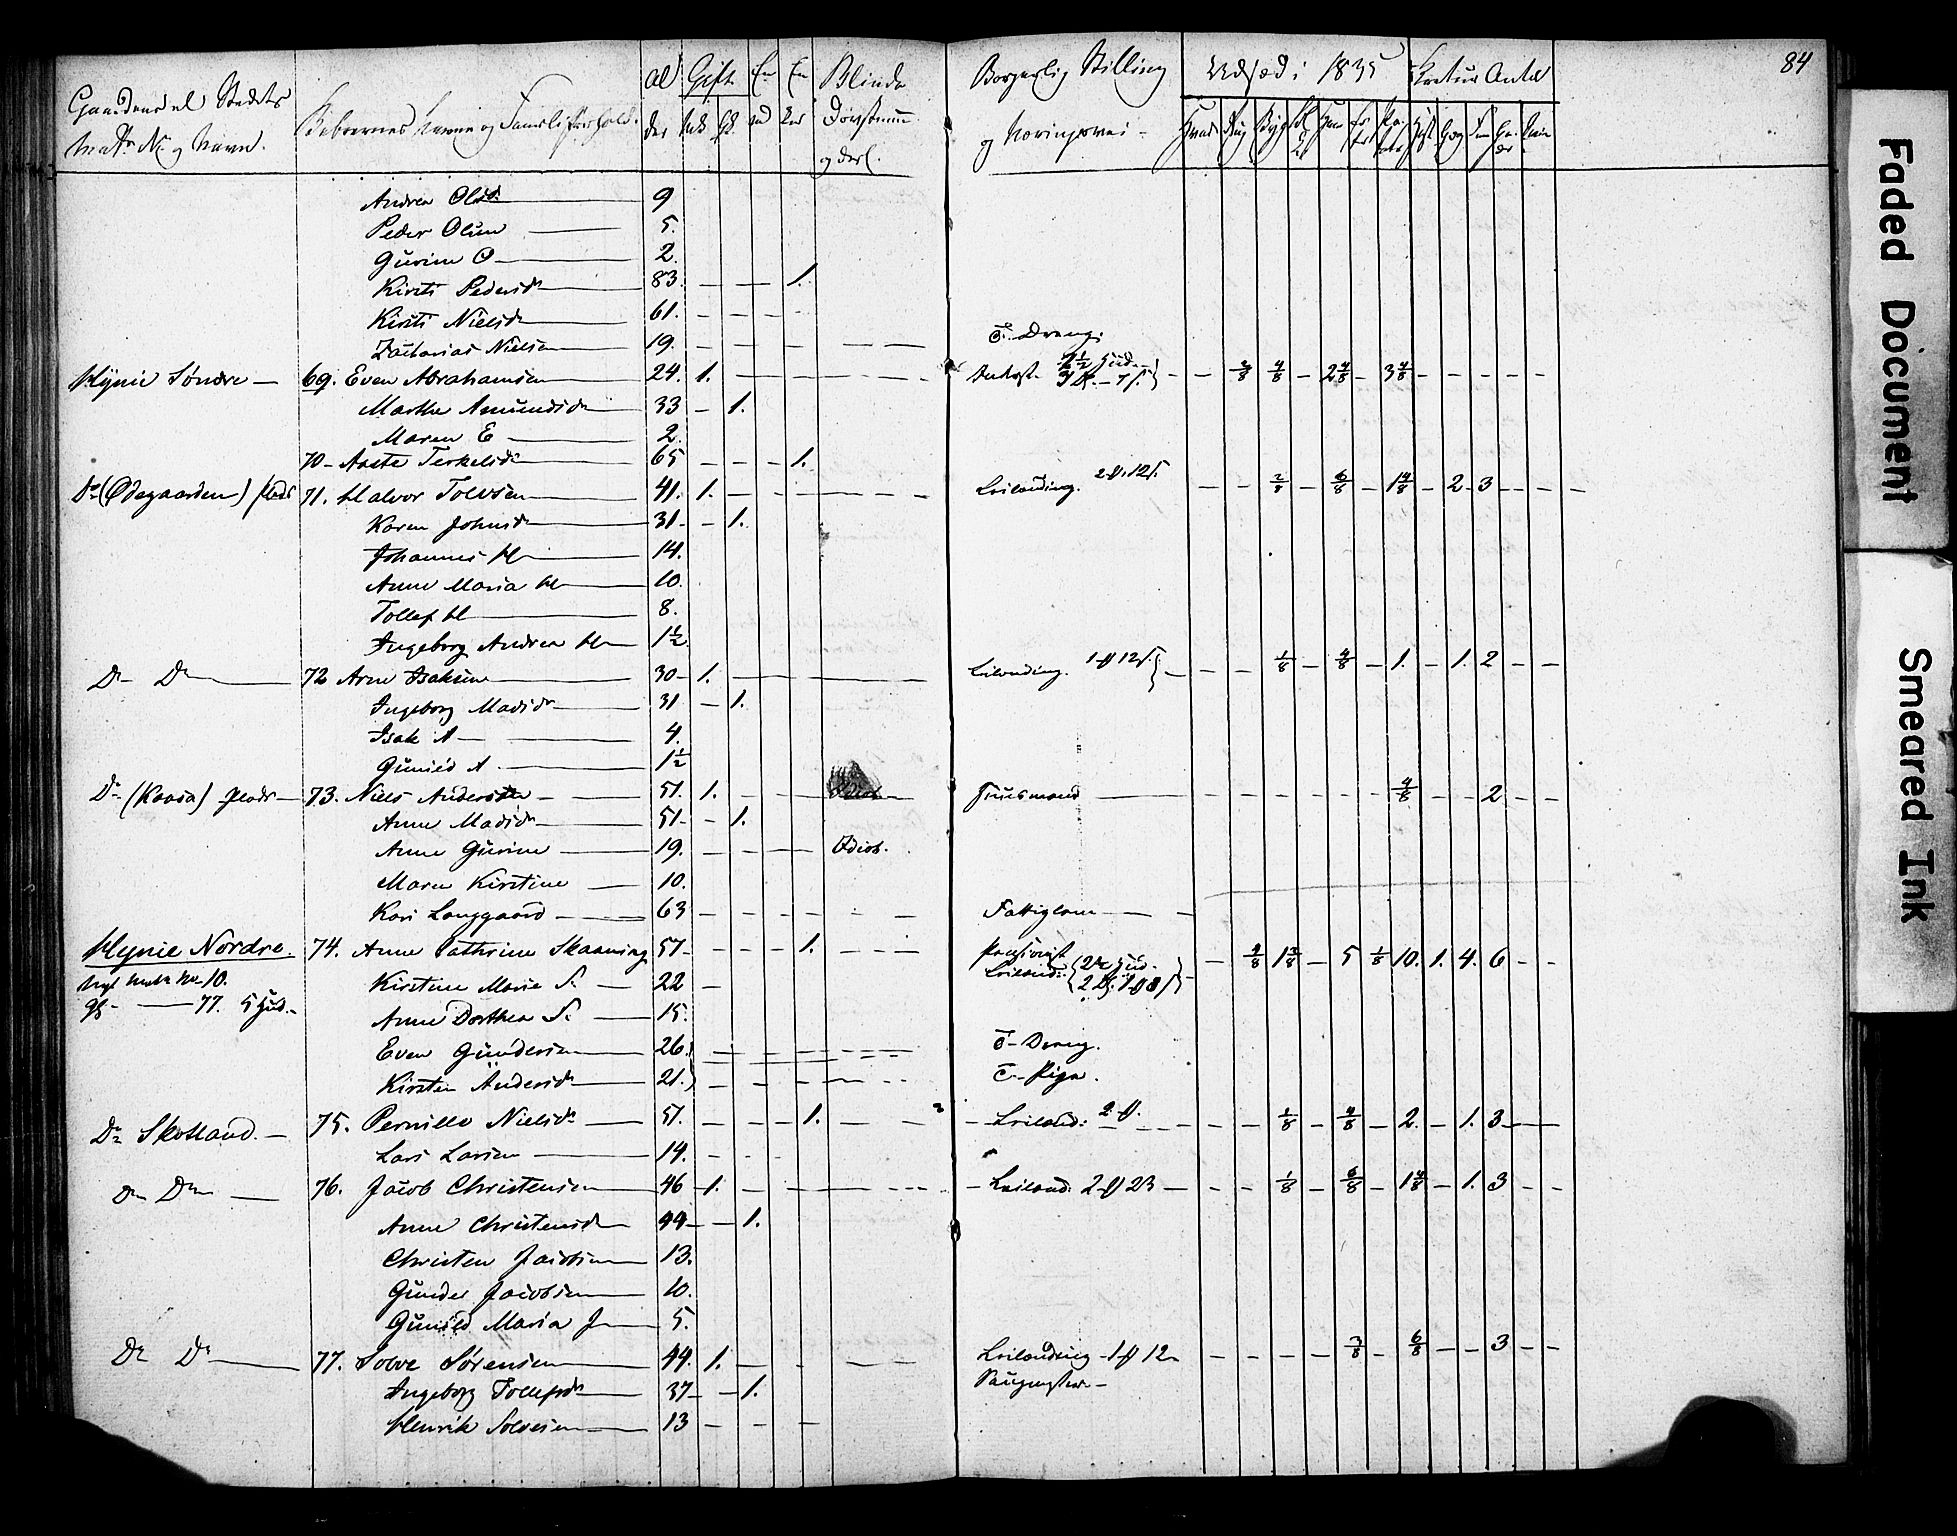 84
Gaardens el Stedets Matr. No og Navn.
Beboernes Navne og Familieforhold.
Al der
Gift
Blinde Døvstumme og desl.
Borgerlig Stilling og Næringsvei -
Udsæd i 1835
Kreatur Antal
Andrea Olsd. 9
Peder Olsen 5.
Gurine O 2.
Kirsti Pedersd 83. — — 1.
Kirsti Nielsd 61.
Zacharias Nielsen 19. T. Dreng.
Hynie Søndre — 69. Even Abrahamsen 24. 1. — 2/8 4/8 — 2 4/8 — 3 4/8
Marthe Amundsd 33 — 1.
Maren E 2.
70 - Aaste Terkelsd 65 — — — 1.
Do (Ødegaarden) Plads 71. Halvor Tolvsen 41. 1. Leilending. 2 12 — — 2/8 — 6/8 — 1 4/8 — 2 3
Karen Johnsd 31 — 1.
Johannes H 14.
Anne Maria H 10.
Tollef H 8.
Ingeborg Andrea H 1 1/2
Do Do 72 Arne Isaksen 30 - 1. Leilending. 1 12 — — 1/8 — 4/8 — 1. — 1. 2
Ingeborg Madsd 31 — 1.
Isak A 4.
Gunild A 1 1/2
Do (Kaasa) Plads 73. Niels Andersen 51. 1. Huusmand 4/8 — — 2
Anne Madsd 51 — 1.
Anne Gurine 19. Idiot.
Maren Kirstine 10.
Kari Langgaard 63 Fattiglem
Hynie Nordre. 74. Anne Cathrine Skaaning 57 — — — 1. Pensionist 2/8 1 3/8 — 5 1/8 10. 1. 4. 6
Nyt Matr No 10. Kirstine Marie S. 22 Leilend:
gl — 77. 5 Hud. Anne Dorthea S. 15.
Even Gundersen 26. T- Dreng.
Kirsten Andersd 21. T- Pige.
Do Skotland. — 75. Pernille Nielsd 51. — — — 1. Leilend: 2 1/8 — 4/8 — 2. — 1. 3
Lars Larsen 14.
Do Do — 76. Jacob Christensen 46 1. Leilend. 2 23 — 1/8 — 6/8 — 1 4/8 — 1. 3
Anne Christensd 44 — 1.
Christen Jacobsen 13.
Gunder Jacobsen 10.
Gunild Maria J 5.
Do Do 77. Solve Sørensen 44. 1. Leilending 1 12 3/8 — 6/8 — — 3
Ingeborg Tollefsd 37 — 1. Saugmester
Henrik Solvesen 13
Faded Document
Smeared Ink